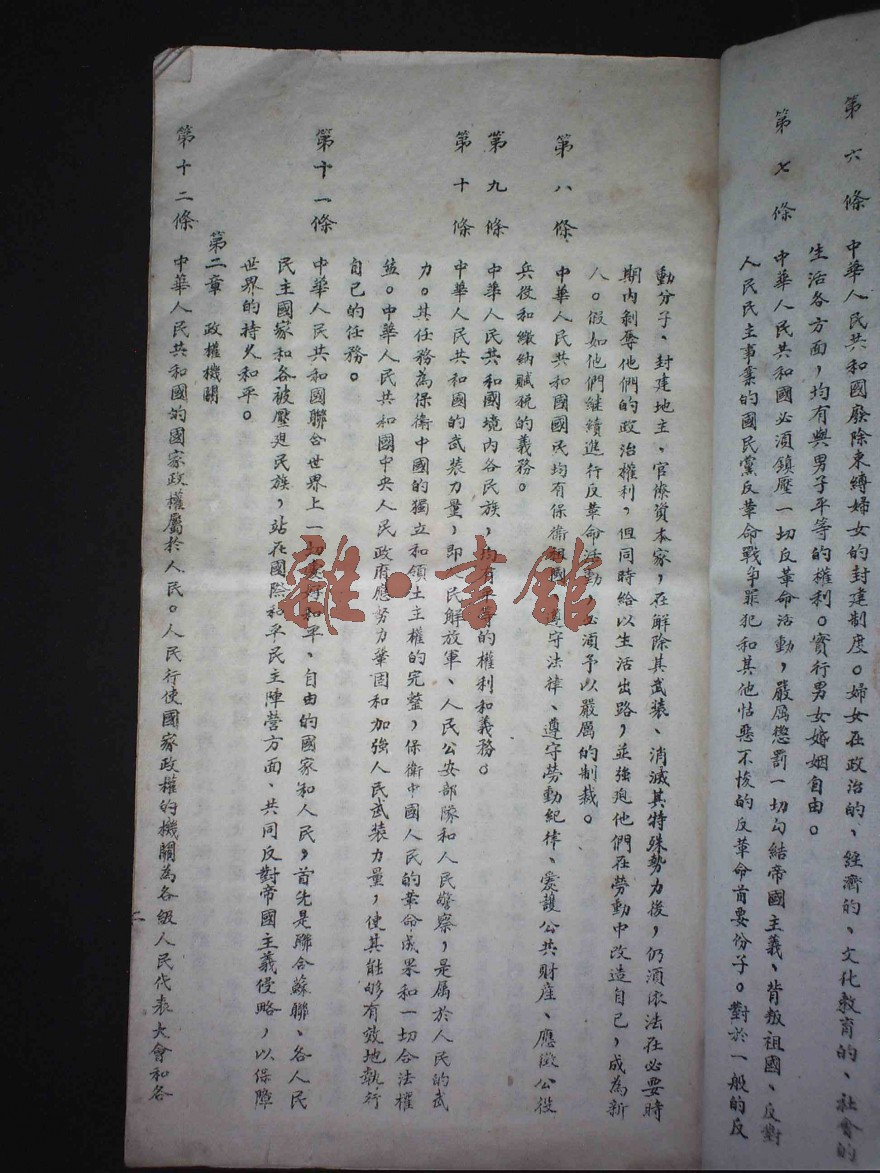 第六條 中華人民共和國廢除束縛婦女的封建制度。婦女在政治的、經濟的、文化教育的、社會的
生活各方面，均有與男子平等的權利。實行男女婚姻自由。
第七條 中華人民共和國必須鎮壓一切反革命活動，嚴厲懲罰一切勾結帝國主義、背叛祖國、反對
人民民主事業的國民黨反革命戰爭罪犯和其他怙惡不悛的反革命首要份子。對於一般的反
動分子、封建地主、官僚資本家，在解除其武裝、消滅其特殊勢力後，仍須依法在必要時
期內剝奪他們的政治權利，但同時給以生活出路，並強廹他們在勞動中改造自己，成為新
人。假如他們継續進行反革命活動，必須予以嚴厲的制裁。
第八條 中華人民共和國國民均有保衛祖國、遵守法律、遵守勞動紀律、愛護公共財產、應徵公役
兵役和繳納賦税的義務。
第九條 中華人民共和國境內各民族，均有平等的權利和義務。
第十條 中華人民共和國的武裝力量，即人民解放軍、人民公安部隊和人民警察，是屬於人民的武
力。其任務為保衛中國的獨立和領土主權的完整，保衛中國人民的革命成果和一切合法權
益。中華人民共和國中央人民政府應努力鞏固和加強人民武裝力量，使其能够有效地執行
自己的任務。
第十一條 中華人民共和國聯合世界上一切愛好和平、自由的國家和人民，首先是聯合蘇聯、各人民
民主國家和各被壓廹民族，站在國際和平民主陣營方面、共同反對帝國主義侵略，以保障
世界的持久和平。
第二章 政權機關
第十二條 中華人民共和國的國家政權屬於人民。人民行使國家政權的機關為各級人民代表大會和各
二
雜·書館